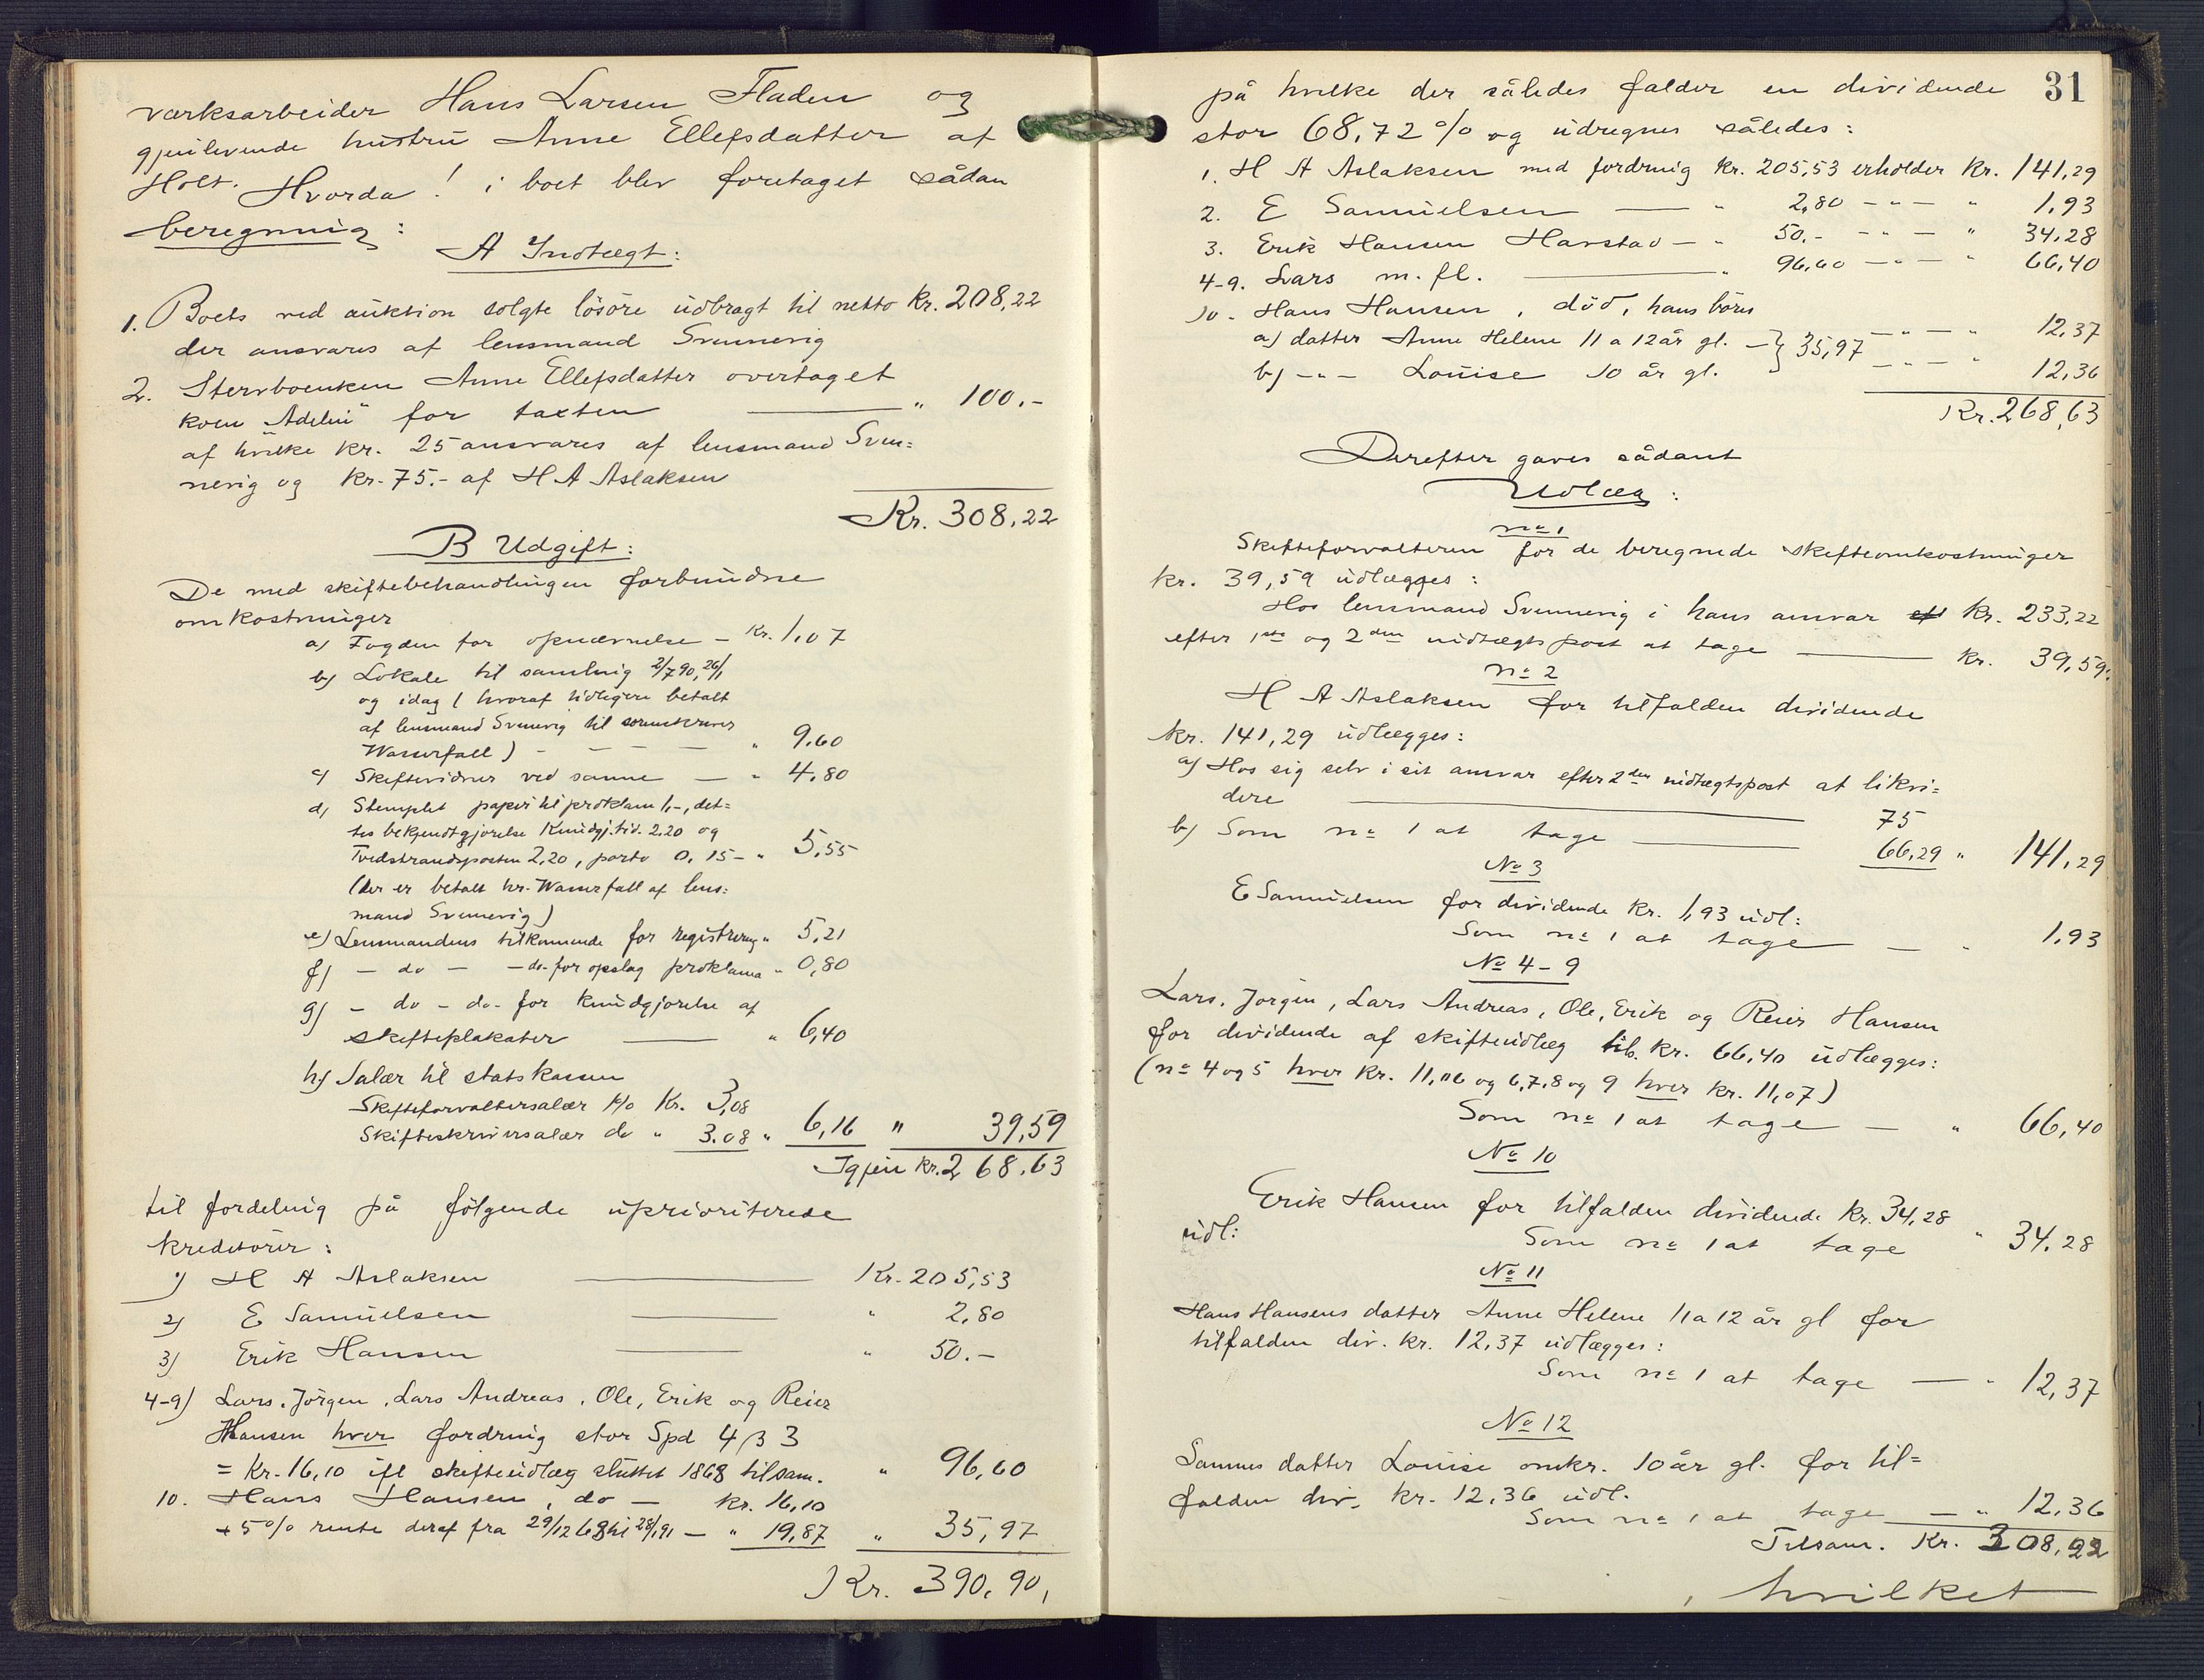 værksarbeider Hans Larsen Fladen og
gjenlevende hustru Anne Ellefsdatter af
Holt. Hvorda! i boet blev foretaget sådan
beregning:
A Indtægt:
1. Boets ved auktion solgte lösöre udbragt til netto Kr. 208,22
der ansvares af lensmand Svennevig
2. Stervboenken Anne Ellefsdatter overtaget
koen "Adelin" for taxten " 100.-
af hvilke kr. 25 ansvares af lensmand Sven=
nevig og kr. 75.- af H A Aslaksen
Kr. 308,22
B Udgift:
De med skiftebehandlingen forbundne
omkostninger
a) Fogden for opnævnelse - Kr. 1,07
b) Lokale til samling 2/7 90, 26/1
og idag (hvoraf tidligere betalt
af lensmand Svennevig til sorenskriver
Wasserfall) - - - - " 9.60
c) Skiftevidner ved samme - " 4,80
d) Stemplet papir til proklam 1,-, det=
tes bekjendtgjörelse Kundgj.tid. 2.20 og
Tvedstrandsposten 2,20, porto 0,15 - " 5,55
(der er betalt hr. Wasserfall af lens:
mand Svennevig)
e) Lensmandens tilkommende for registrering " 5,21
f) - do - - do - for opslag proklama " 0,80
g) - do - do - for kundgjörelse af
skifteplakater " 6,40
h) Salær til statskassen
Skifteforvaltersalær 1% Kr. 3,08
Skifteskriversalær do " 3.08 " 6,16 " 39,59
Igjen kr. 268.63
til fordeling på fölgende uprioriterede
kreditorer:
1) H A Aslaksen Kr. 205,53
2) E Samuelsen " 2,80
3) Erik Hansen " 50.-
4-9) Lars, Jörgen, Lars Andreas, Ole, Erik og Reier
Hansen hver fordring stor Spd 4 β 3
= Kr. 16,10 ifl skifteudlæg sluttet 1868 tilsam. " 96,60
10. Hans Hansen, do - kr. 16,10
+ 5% rente deraf fra 29/12 68 til 28/1 91 - " 19,87 " 35,97
Kr. 390,90,
31
på hvilke der således falder en dividende
stor 68,72% og udregnes således:
1. H A Aslaksen med fordring kr. 205,53 erholder Kr. 141,29
2. E Samuelsen - " 2,80 - " - " 1,93
3. Erik Hansen Harstad - " 50.- - " - " 34,28
4-9. Lars m. fl. " 96,60 - " - " 66,40
10. Hans Hansen, död, hans börn
a) datter Anne Helene 11 a 12 år gl. - } 35,97 - " - " 12,37
b) - " - Louise 10 år gl. - " - " 12,36
Kr. 268,63
Derefter gaves sådant
Udlæg:
no 1
Skifteforvalteren for de beregnede skifteomkostninger
kr. 39,59 udlægges:
Hos lensmand Svennevig i hans ansvar kr. 233,22
efter 1ste og 2den indtægtspost at tage kr. 39,59.
no 2
H A Aslaksen for tilfalden dividende
kr. 141,29 udlægges:
a) Hos sig selv i sit ansvar efter 2den indtægtspost at likvi=
dere 75
b) Som no 1 at tage 66,29 " 141,29
No 3
E Samuelsen for dividende kr. 1,93 udl:
Som no 1 at tage - " 1,93
No 4-9
Lars, Jörgen, Lars Andreas, Ole, Erik og Reier Hansen
for dividende af skifteudlæg tils. kr. 66,40 udlægges:
(no 4 og 5 hver kr. 11,06 og 6,7,8 og 9 hver kr. 11,07)
Som no 1 at tage - " 66,40
No 10
Erik Hansen for tilfalden dividende kr. 34,28
udl: Som no 1 at tage " 34,28
No 11
Hans Hansens datter Anne Helene 11 a 12 år gl for
tilfalden div. kr. 12,37 udlægges:
Som no 1 at tage - " 12,37
No 12
Sammes datter Louise omkr. 10 år gl. for til=
falden div. kr. 12,36 udl.
Som no 1 at tage - " 12,36
Tilsam. Kr. 308,22
, hvilket